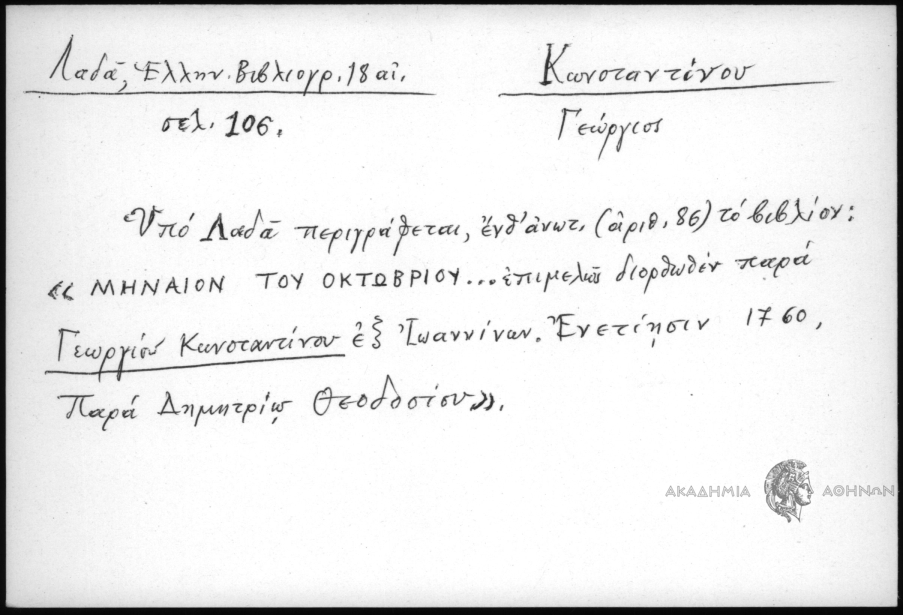 Λαδᾶ, Ἑλλην. Βιβλιογρ. 18 αἰ.
σελ. 106.
Κωνσταντίνου
Γεώργιος
Ὑπό Λαδᾶ περιγράφεται, ἔνθ' ἀνωτ. (ἀριθ. 86) τό βιβλίον:
«ΜΗΝΑΙΟΝ ΤΟΥ ΟΚΤΩΒΡΙΟΥ... ἐπιμελῶς διορθωθέν παρά
Γεωργίου Κωνσταντίνου ἐξ Ἰωαννίνων. Ἐνετίησιν 1760,
Παρά Δημητρίῳ Θεοδοσίου».
ΑΚΑΔΗΜΙΑ ΑΘΗΝΩΝ